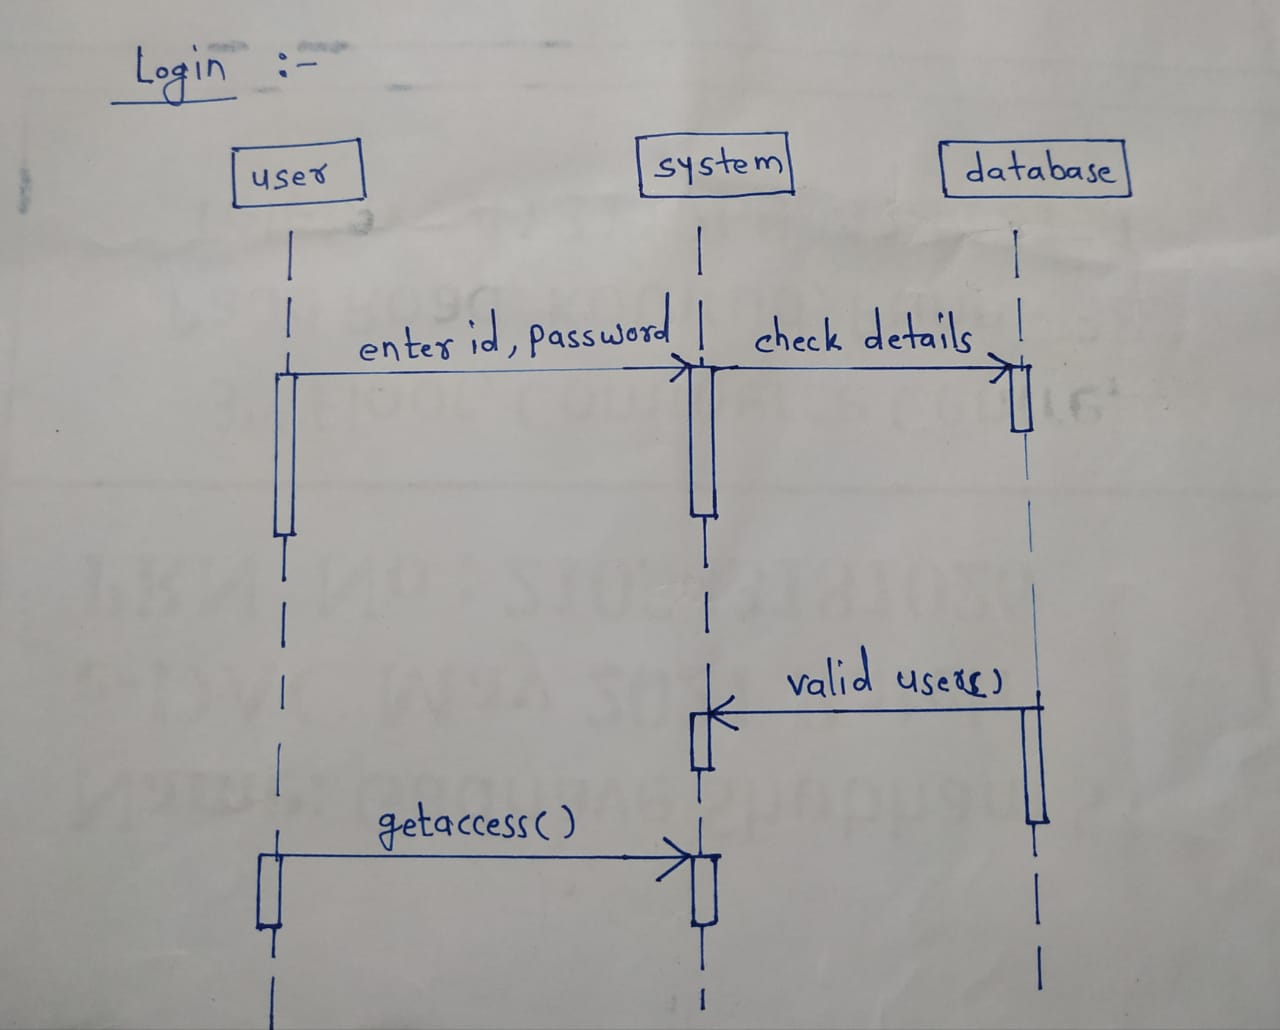 Login :-
user
system
database
enter id, password
check details
valid user()
getaccess()